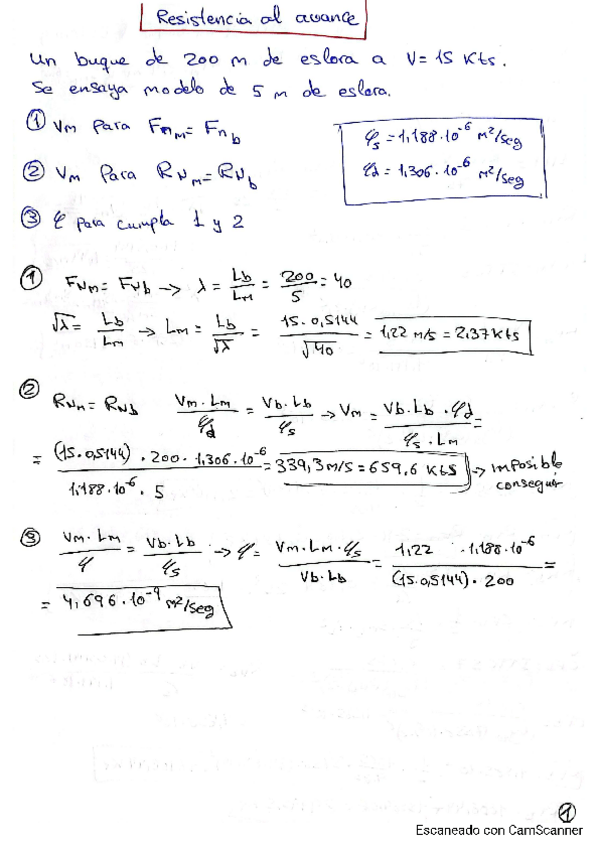 Resistencia al avance
Un buque de 200 m de eslora a V= 15 Kts.
Se ensaya modelo de 5 m de eslora.
① Vm para Fnm = Fnb
② Vm para RNm = RNb
③ φ para cumpla 1 y 2
φs = 1,188·10⁻⁶ m²/seg
φd = 1,306·10⁻⁶ m²/seg
① FNm = FNb → λ = Lb/Lm = 200/5 = 40
√λ = Lb/Lm → Lm = Lb/√λ = 15·0,5144/√40 = 1,22 m/s = 2,37 Kts
② RNm = RNb Vm·Lm/φd = Vb·Lb/φs → Vm = Vb·Lb·φd/φs·Lm =
= (15·0,5144)·200·1,306·10⁻⁶/1,188·10⁻⁶·5 = 339,3 m/s = 659,6 Kts → imposible conseguir
③ Vm·Lm/φ = Vb·Lb/φs → φ = Vm·Lm·φs/Vb·Lb = 1,22 ·1,188·10⁻⁶/(15·0,5144)·200 =
= 4,696·10⁻⁹ m²/seg
1
Escaneado con CamScanner